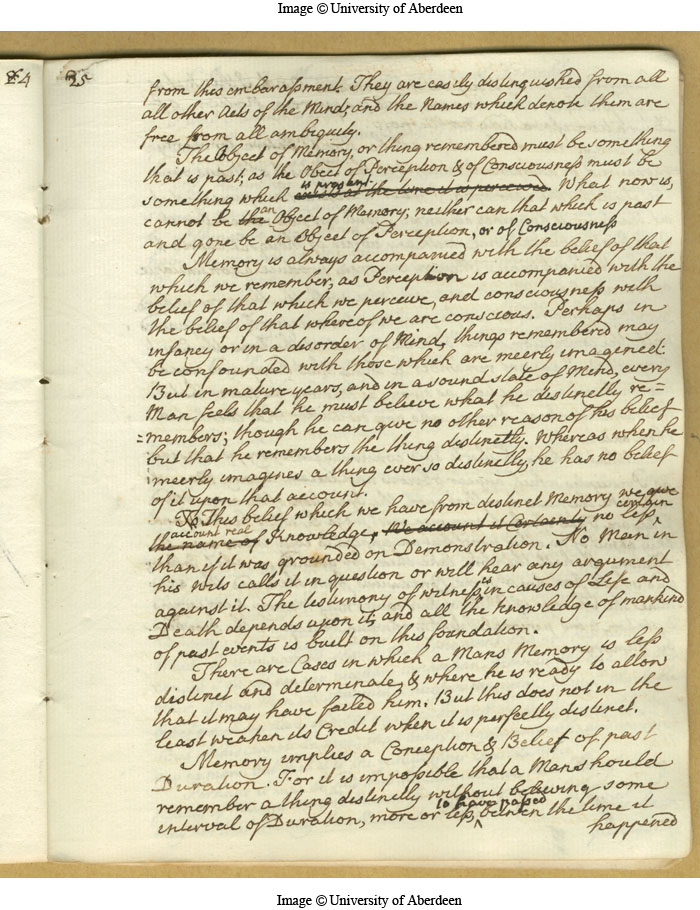 Image © University of Aberdeen
24
25
from this embarassment. They are easily distinguished from all
all other Acts of the Mind, and the Names which denote them are
free from all ambiguity.
The Object of Memory, or thing remembered must be something
that is past, as the Object of Perception & of Consciousness must be
is present.
something which existed at the time it is perceived. What now is,
an
cannot be the Object of Memory, neither can that which is past
and gone be an Object of Perception, or of Consciousness
Memory is always accompanied with the belief of that
which we remember, as Perception is accompanied with the
belief of that which we perceive, and consciousness with
the belief of that whereof we are conscious. Perhaps in
infancy or in a disorder of Mind, things remembered may
be confounded with those which are meerly imagined.
But in mature years, and in a sound state of Mind, every
Man feels that he must believe what he distinctly re=
=members; though he can give no other reason of his belief
but that he remembers the thing distinctly. Whereas when he
meerly imagines a thing ever so distinctly, he has no belief
of it upon that account.
This belief which we have from distinct Memory we give
account real certain
the name of Knowledge, We account it Certainty no less
than if it was grounded on Demonstration. No Man in
his wits calls it in question or will hear any argument
against it. The testimony of witness in causes of Life and
Death depends upon it, and all the knowledge of mankind
of past events is built on this foundation.
There are Cases in which a Mans Memory is less
distinct and determinate, & where he is ready to allow
that it may have failed him. But this does not in the
least weaken its Credit when it is perfectly distinct.
Memory implies a Conception & Belief of past
Duration. For it is impossible that a Man should
remember a thing distinctly without believing some
to have passed
interval of Duration, more or less, between the time it
happened
Image © University of Aberdeen